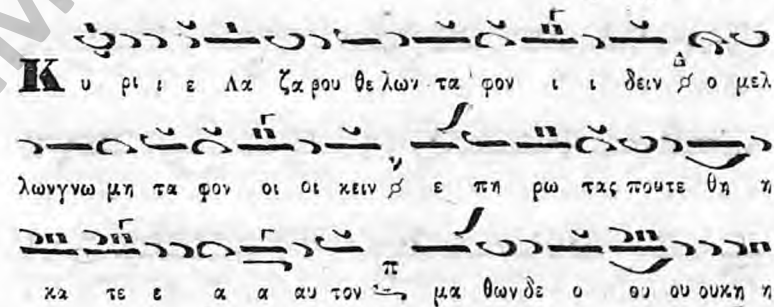 Κ υ ρι ι ε Λα ζα ρου θε λων τα φον ι ι δειν Δ ο μελ
λων γνω μη τα φον οι οι κειν ν ε πη ρω τας που τε θη η
κα τε ε α α αυ τον π μα θων δε ο ου ου ουκ η η